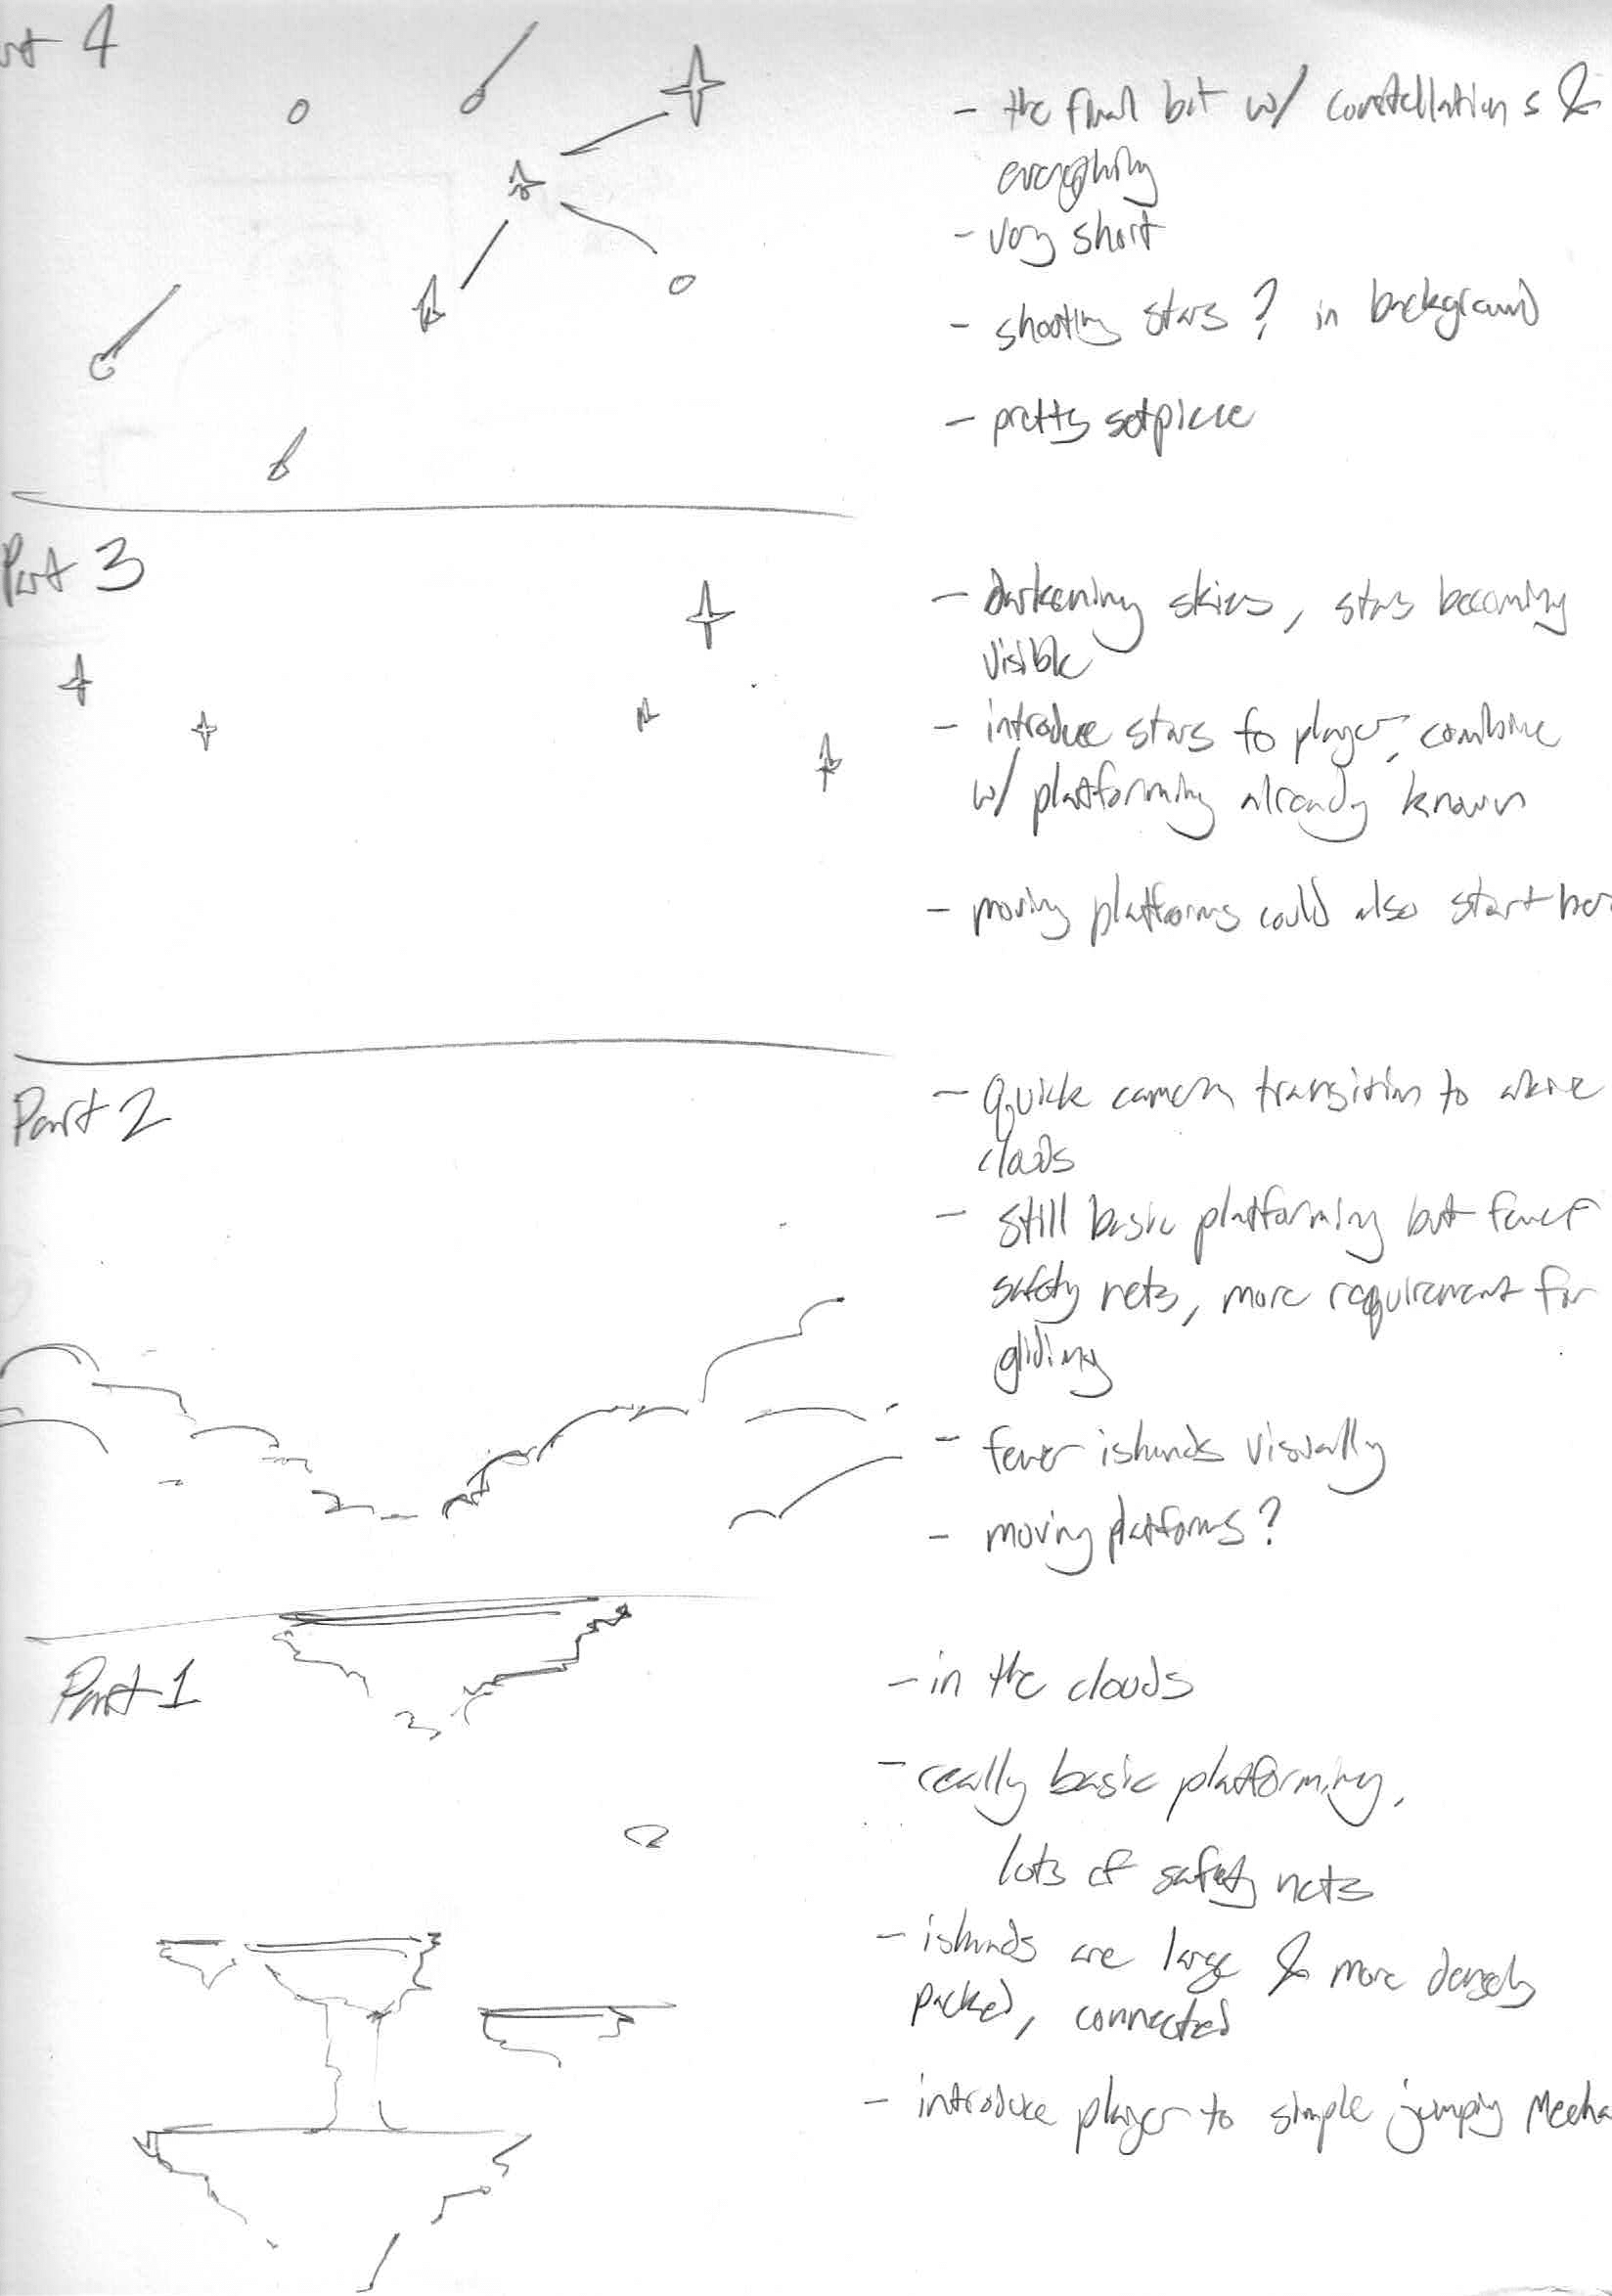 4
- the final bit w/ constellations &
everything
- very short
- shooting stars? in background
- pretty setpiece
Part 3
- darkening skies, stars becoming
visible
- introduce stars to player, combine
w/ platforming already known
- moving platforms could also start
Part 2
- Quick camera transition to above
clouds
- still basic platforming but fewer
safety nets, more requirement for
gliding
- fewer islands visually
- moving platforms?
Part 1
- in the clouds
- really basic platforming,
lots of safety nets
- islands are large & more densely
packed, connected
- introduce player to simple jumping